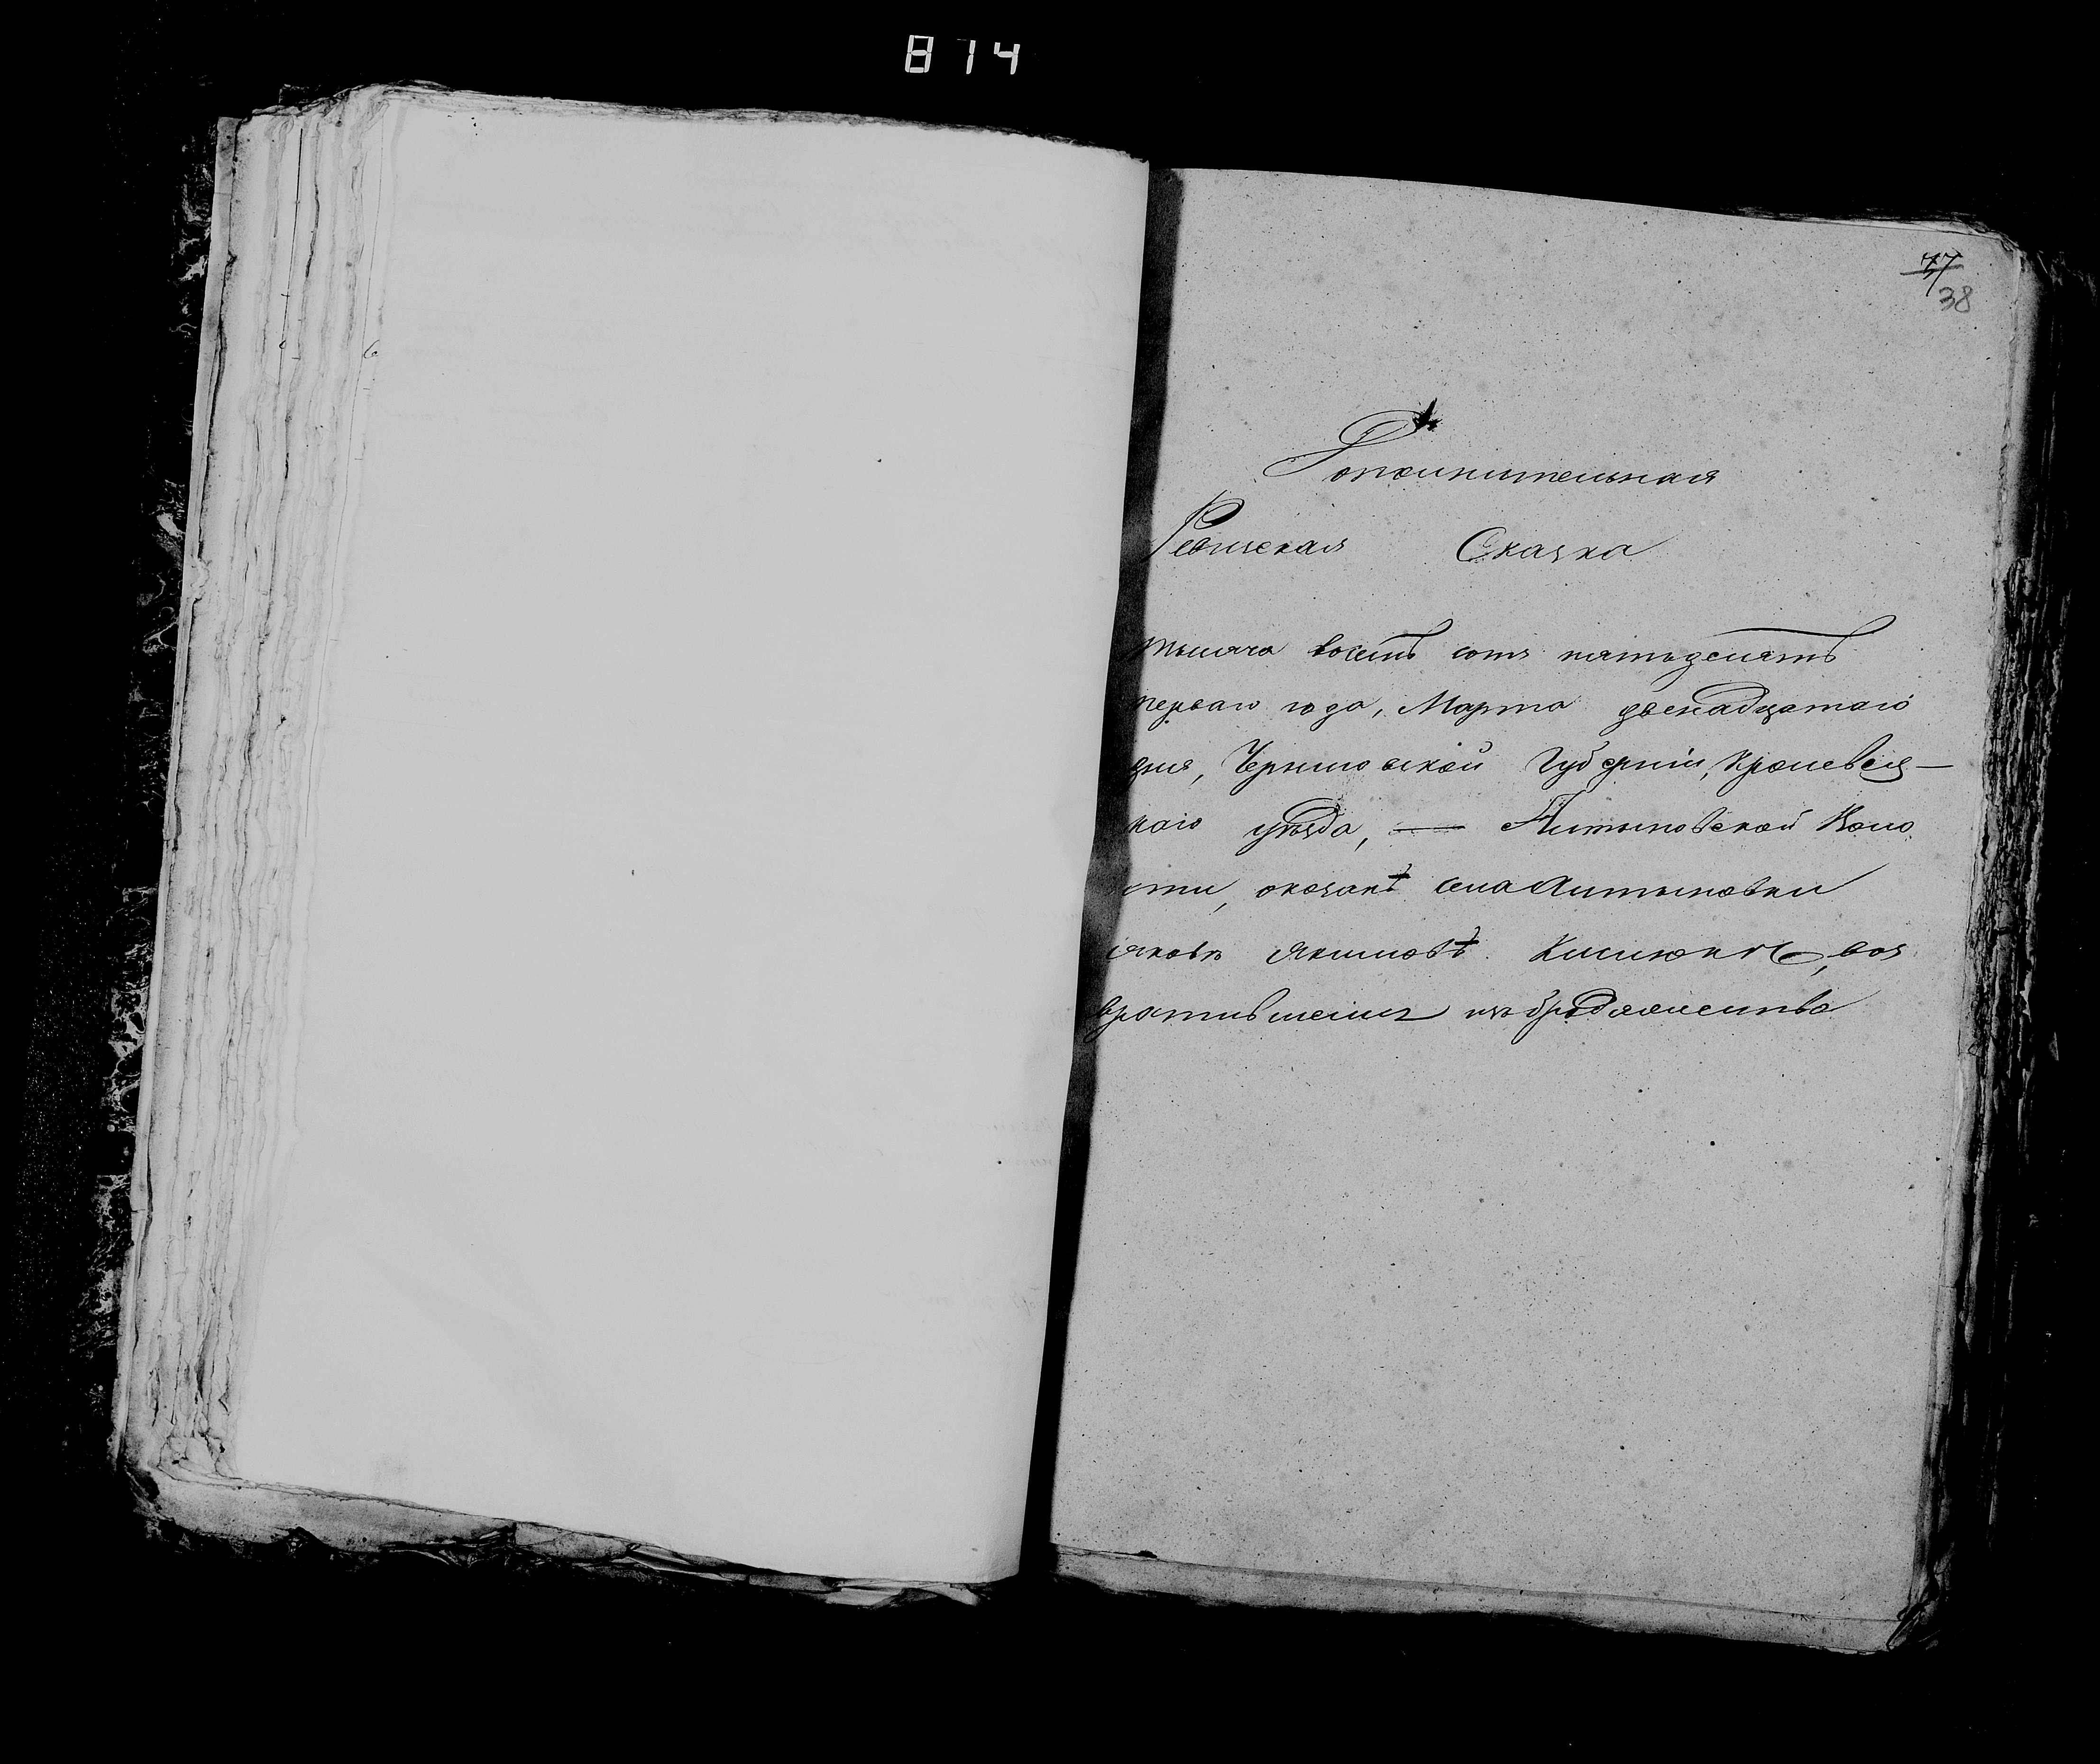 814
77
38
Дополнительная
Ревизская Сказка
тысяча восемь сотъ пятьдесятъ
перваго года, Марта двенадцатаго
дня, Черниговской Губерніи, Кролевец-
каго уѣзда, — Алтыновской Воло
сти, о козакѣ села Алтыновки
Яковѣ Якимовѣ воз
вратившемся изъ бродяжества